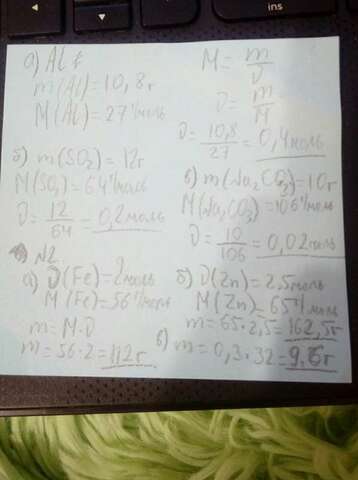 а) Al
m(Al) = 10,8г
M(Al) = 27 г/моль
M = m/ν
ν = m/M
ν = 10,8/27 = 0,4 моль
б) m(SO₂) = 12г
M(SO₂) = 64 г/моль
ν = 12/64 = 0,2 моль
в) m(Na₂CO₃) = 10г
M(Na₂CO₃) = 106 г/моль
ν = 10/106 = 0,02 моль
N2.
а) ν(Fe) = 2 моль
M(Fe) = 56 г/моль
m = M·ν
m = 56·2 = 112г
б) ν(Zn) = 2,5 моль
M(Zn) = 65 г/моль
m = 65·2,5 = 162,5г
в) m = 0,3·32 = 9,6г